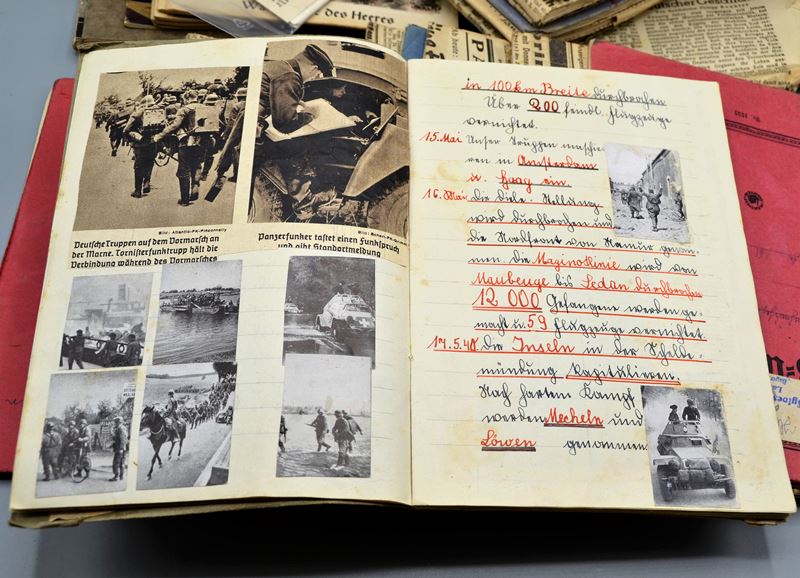 des Heeres
Bild: Atlantic-PK-Pinconnelly
Deutsche Truppen auf dem Vormarsch an
der Marne. Tornisterfunktrupp hält die
Verbindung während des Vormarsches
Panzerfunker tastet einen Funkspruch
und gibt Standortmeldung
in 100 km Breite durchbrochen
Über 200 feindl. Flugzeuge
vernichtet.
15. Mai Unser Truppen marschie
ren in Amsterdam
u. Haag ein.
16. Mai die Stellung
wird durchbrochen und
die Nordfront von Namur genom-
men. die Maginotlinie wird von
Maubeuge bis Sedan durchbrochen
12 000 Gefangene werden ge-
macht u. 59 Flugzeuge vernichtet
17.5.40. Die Inseln in der Schelde-
mündung kapitulieren.
Nach hartem Kampf
werden Mecheln und
Löwen genommen